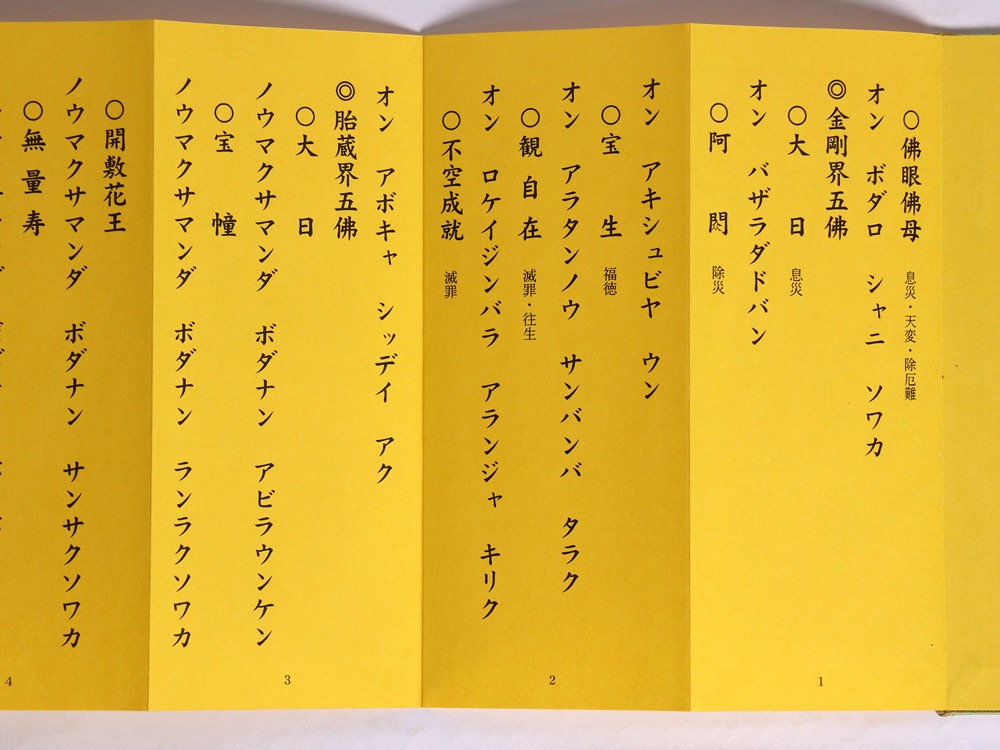 ○佛眼佛母 息災・天変・除厄難
オン ボダロ シャニ ソワカ
◎金剛界五佛
○大日 息災
オン バザラダドバン
○阿閦 除災
1
オン アキシュビヤ ウン
○宝生 福徳
オン アラタンノウ サンバンバ タラク
○観自在 滅罪・往生
オン ロケイジンバラ アランジャ キリク
○不空成就 滅罪
2
オン アボキャ シッデイ アク
◎胎蔵界五佛
○大日
ノウマクサマンダ ボダナン アビラウンケン
○宝幢
ノウマクサマンダ ボダナン ランラクソワカ
3
○開敷花王
ノウマクサマンダ ボダナン サンサクソワカ
○無量寿
4